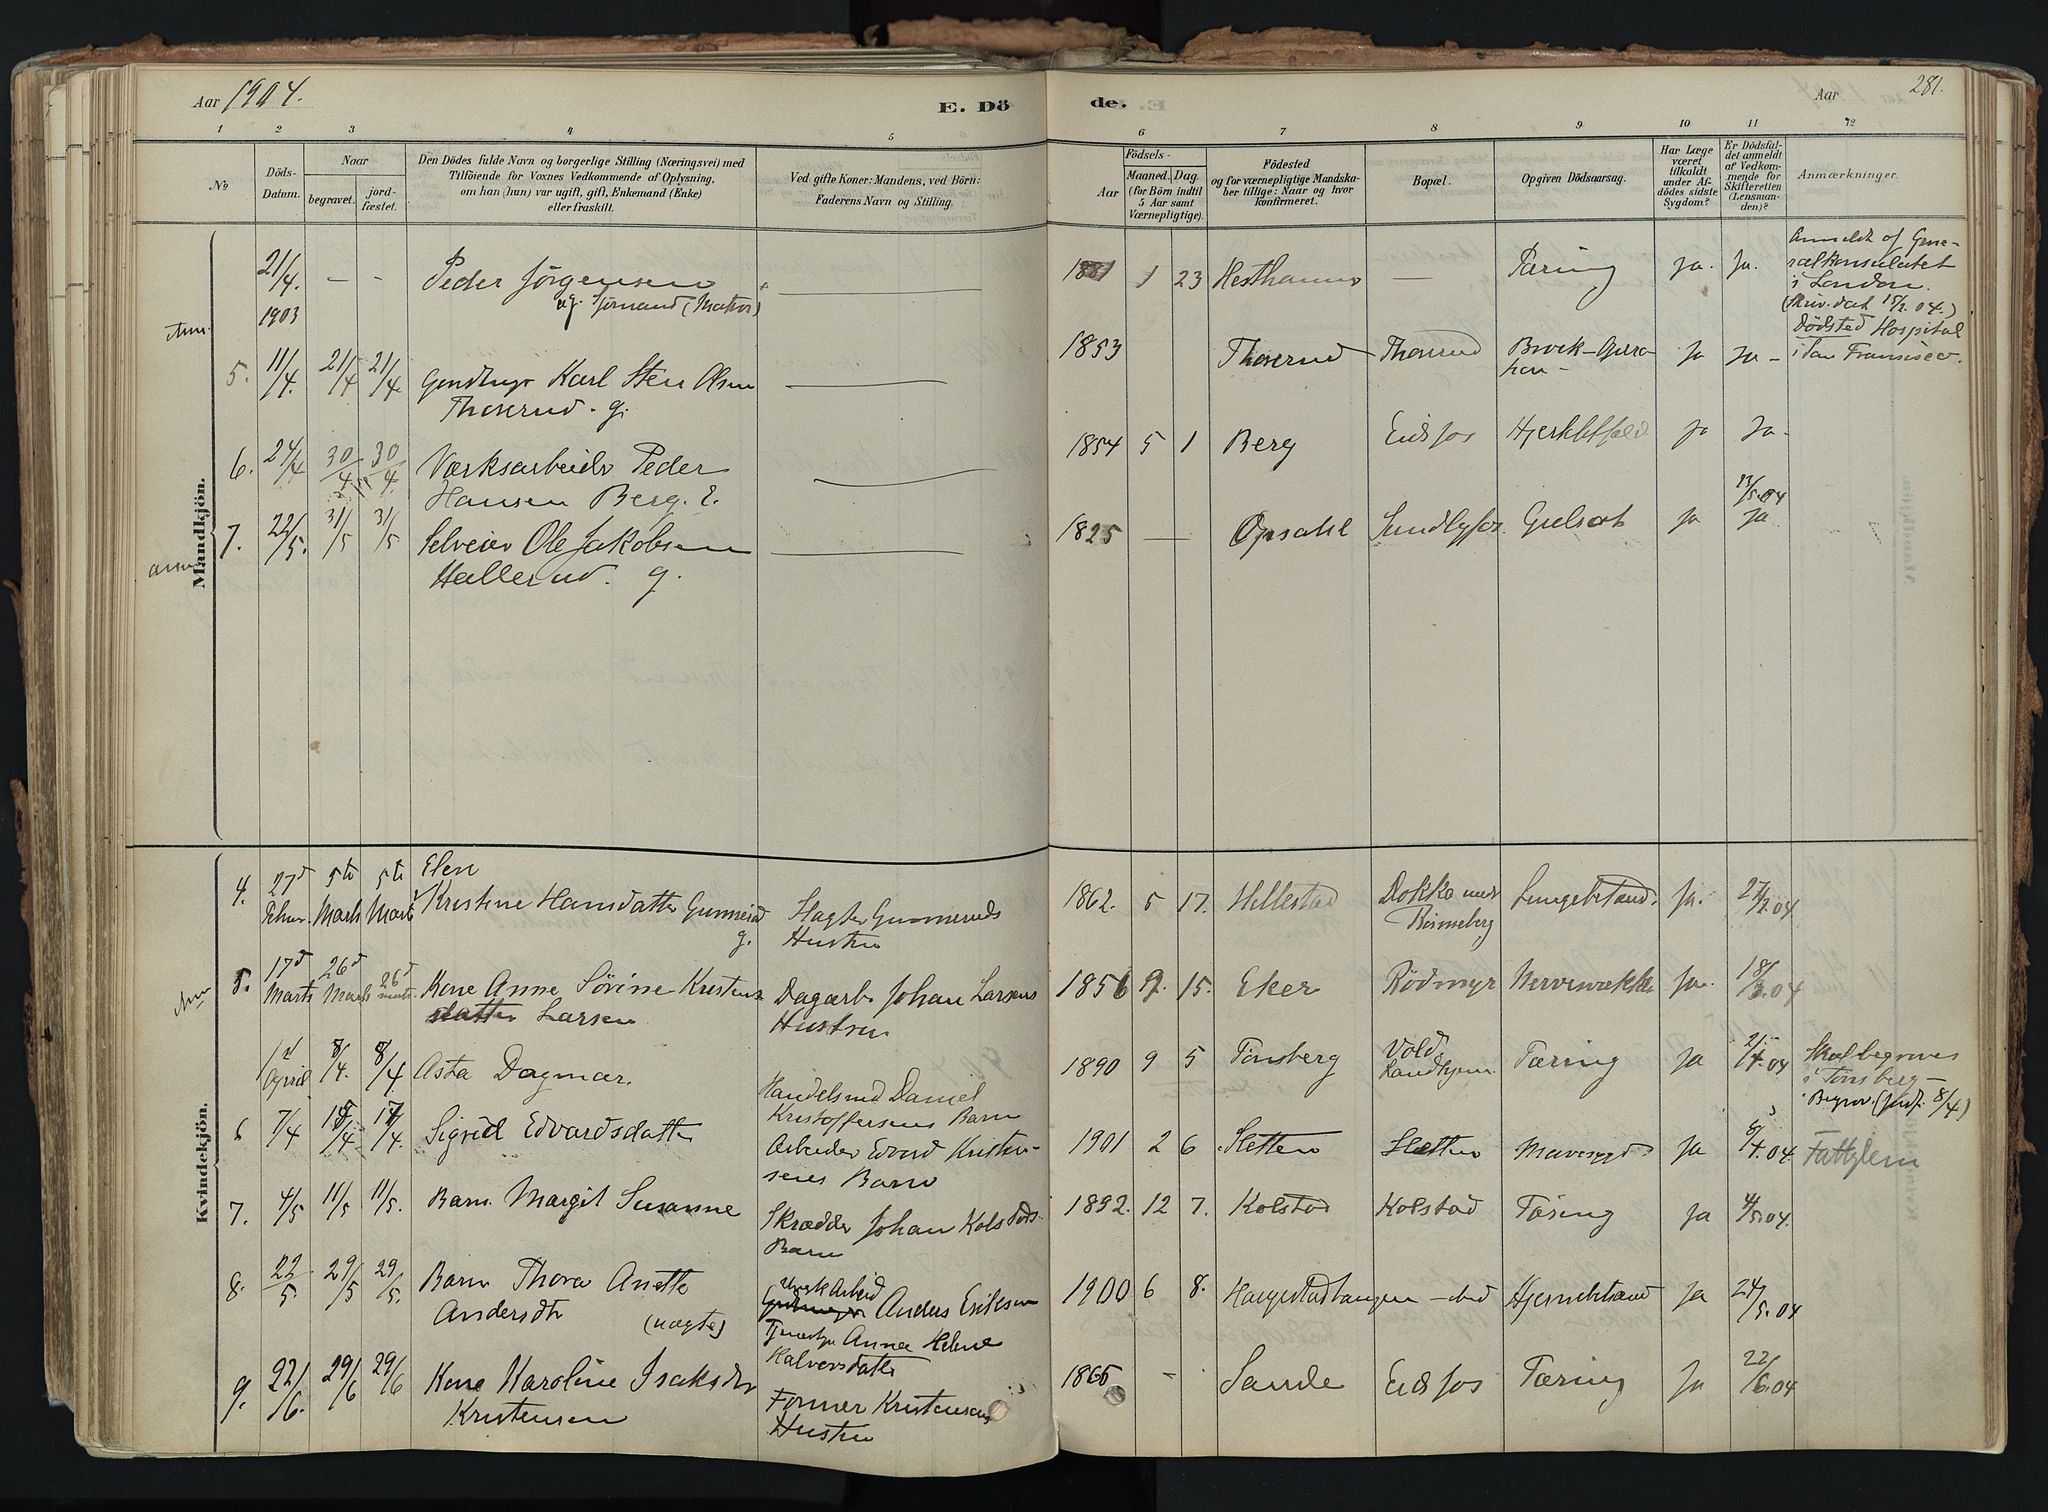 Aar 1904.
E. Dö
de.
Aar
281.
1 2 3 4 5 6 7 8 9 10 11 12
No
Döds-
Datum.
Naar
begravet.
jord-
fæstet.
Den Dödes fulde Navn og borgerlige Stilling (Næringsvei) med
Tilföiende for Voxnes Vedkommende af Oplysning,
om han (hun) var ugift, gift, Enkemand (Enke)
eller fraskilt.
Ved gifte Koner: Mandens, ved Börn:
Faderens Navn og Stilling.
Födsels-
Aar
Maaned.
Dag.
(for Börn indtil
5 Aar samt
Værnepligtige).
Födested
og for værnepligtige Mandska-
ber tillige: Naar og hvor
konfirmeret.
Bopæl.
Opgiven Dödsaarsag.
Har Læge
været
tilkaldt
under Af-
dödes sidste
Sygdom?
Er Dödsfal-
det anmeldt
af Vedkom-
mende for
Skifteretten
(Lensman-
den)?
Anmærkninger.
Mandkjön.
21/4. 1903 — - Peder Jörgensen
ug. Sjömand (Matros)
1881 1 23 Hesthammer — Tæring Ja. Ja.
Anmeldt af Gene-
ralkonsulatet
i London.
(Skriv. dat. 15/2. 04.)
Dödsted Hospital
i San Fransisco.
5. 11/4. 21/4 21/4 Karl Sten Olsen
Thorerud. g.
1853 Thorerud Thorerud Brok-Opera-
tion - Ja Ja -
6. 24/4 30/4 30/4. Værksarbeider Peder
Hansen Berg. E.
1854 5 1 Berg Eidsfos Hjerteslag Ja Ja -
7. 22/5. 31/5 31/5 Selveier Ole Jakobsen
Hallerud. g.
1825 — Opsahl Sundbyfos Gulsot Ja 23/5.04 Ja
Kvindekjön.
4. 27d Febr. 5te Marts 5te Marts Elen
Kristine Hansdatter Gunnerud
g.
Gunneruds
Hustru
1862. 5 17. Hillestad Dokka nedr
Rønneberg Lungebetænd. Ja. 27/2.04
5. 17d Marts 26d Marts 26d Marts. Kone Anne Sörine Kristens-
datter Larsen
Dagarb. Johan Larsens
Hustru
1856 2. 15. Eker Rödmyr Nervesvækkelse Ja. 18/3.04
1d April 8/4. 8/4 Asta Dagmar.
Handelsmd Daniel
Kristoffersens Barn
1890 9 5 Tönsberg Vold
Tæring Ja 2/4.04
Skal begraves
i Tönsberg -
Begrav. (Jordf. 8/4)
6 7/4 17/4 17/4. Sigrid Edvardsdatter
Arbeider Edvard Kristen-
sens Barn
1901 2 6 Sletten Sletten Mavesygd. Ja 8/4.04 Fattiglem
7. 4/5 11/5 11/5. Barn Margit Susanne
Skrædder Johan Kolstads
Barn
1892. 12 7. Kolstad Kolstad Tæring Ja 4/5.04.
8. 22/5. 29/5 29/5. Barn Thora Anette
Andersdtr (uægte)
Værk Arbeid
Anders Eriksen
Tjenestp. Anna Helene
Halvorsdatter
1900 6 8. Haugestadtangen - ibid Hjernebetænd Ja 24/5.04
9. 22/6. 29/6 29/6 Kone Karoline Isaksdtr
Kristensen
Former Kristensens
Hustru
1865 - Sande Eidsfos Tæring Ja 22/6.04